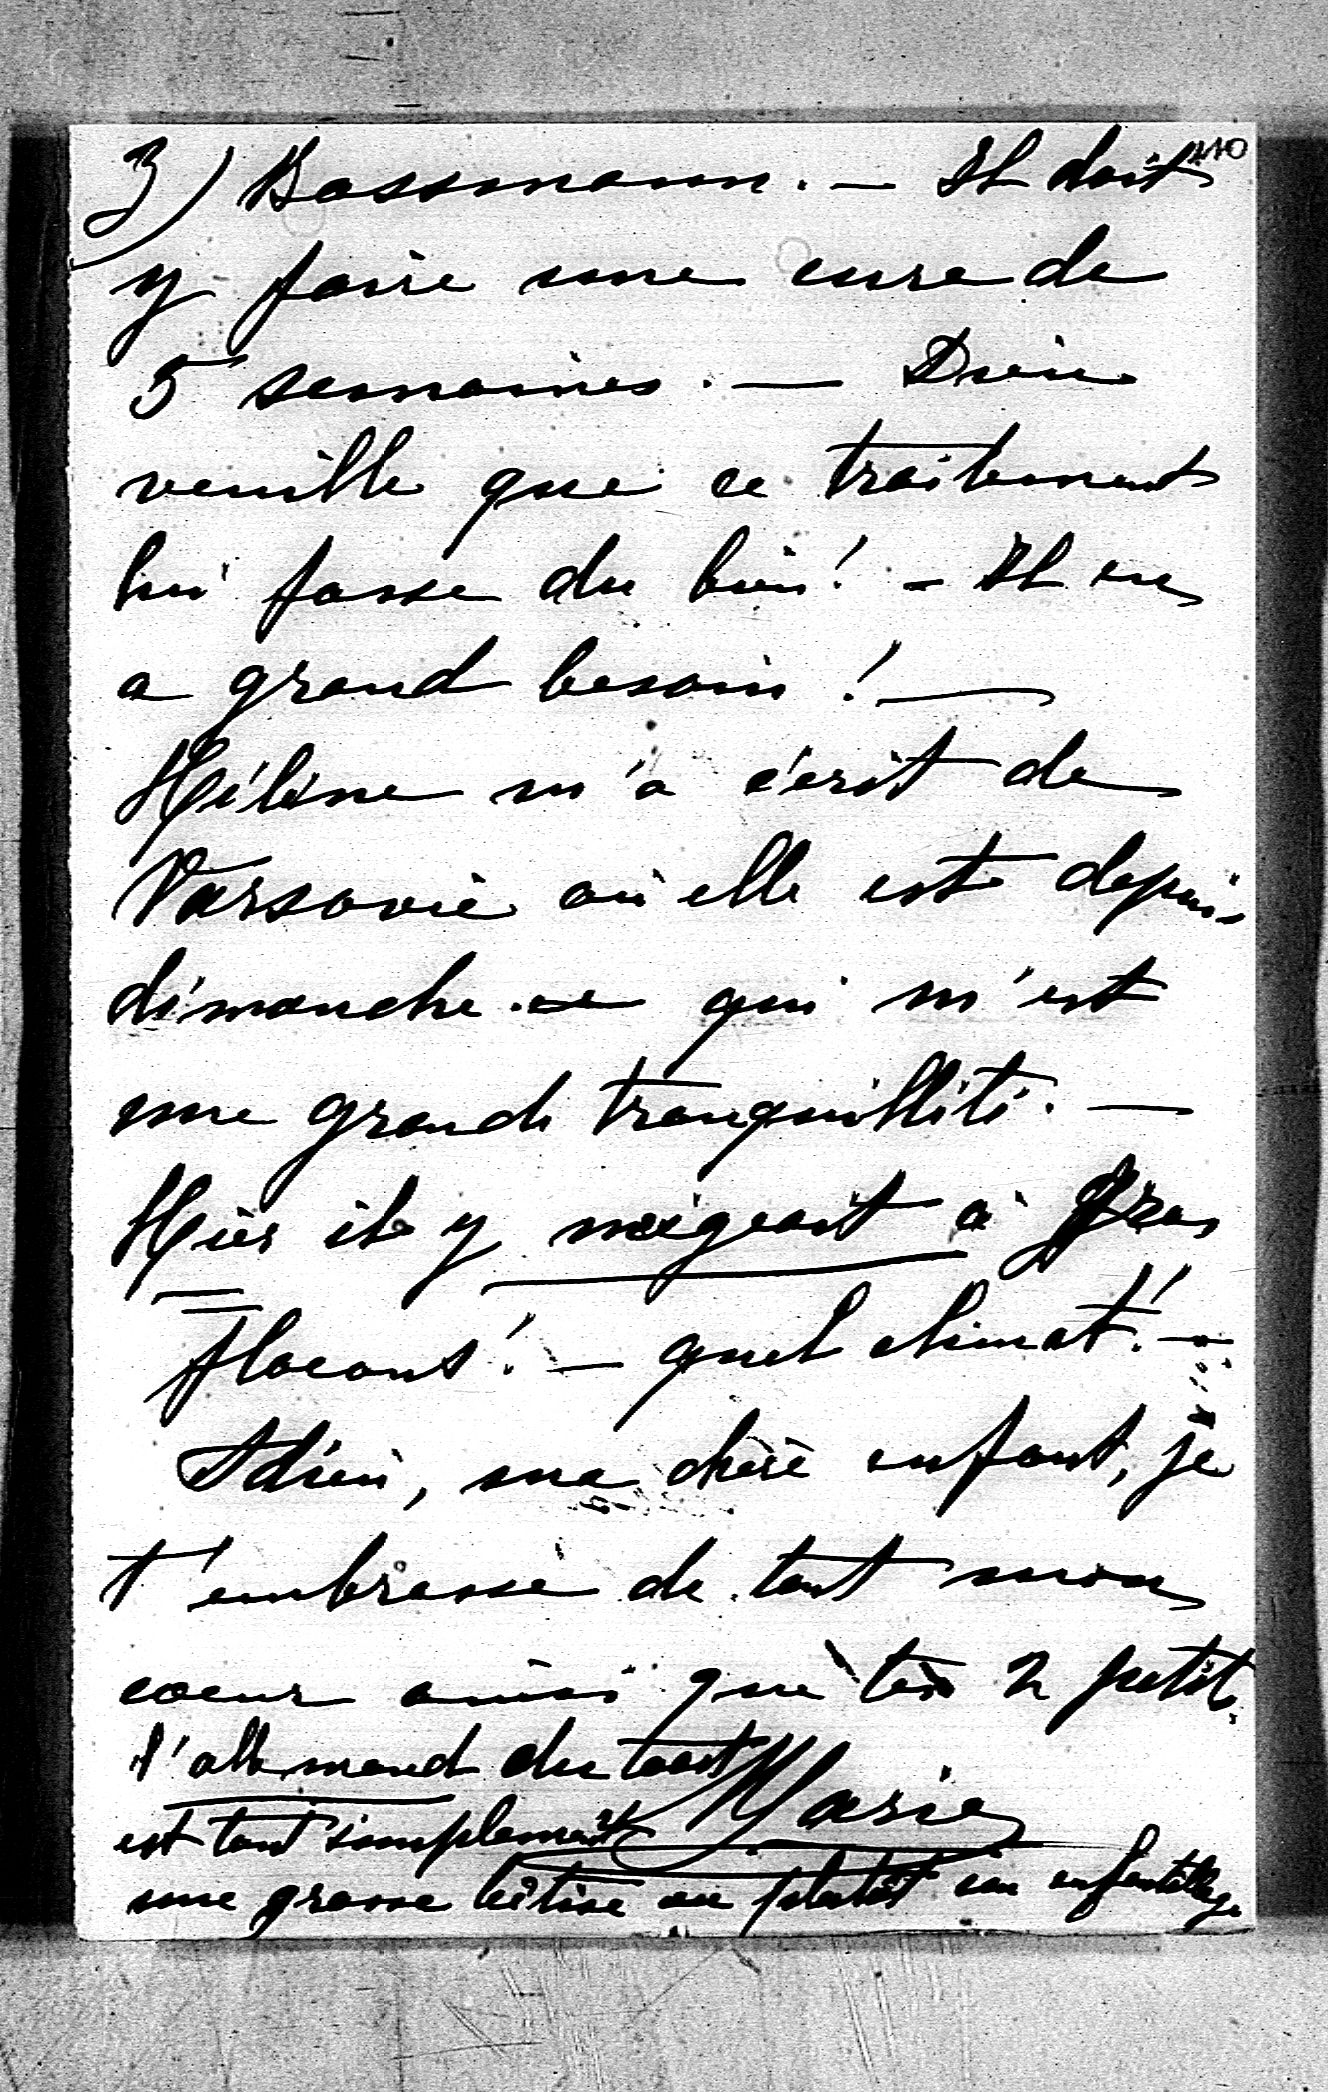 110
3) Bassmann. — Il doit
y faire une cure de
5 semaines. — Dieu
veuille que ce traitement
lui fasse du bien! — Il en
a grand besoin! —
Hélène m'a écrit de
Varsovie où elle est depuis
dimanche. ce qui m'est
une grande tranquillité. —
Hier il y neigeait à gros
flocons! — quel climat! —
Adieu, ma chère enfant, je
t'embrasse de tout mon
coeur ainsi que tes 2 petits.
l'allemand du toast Marie
est tout simplement
une grosse bêtise ou plutôt un enfantillage